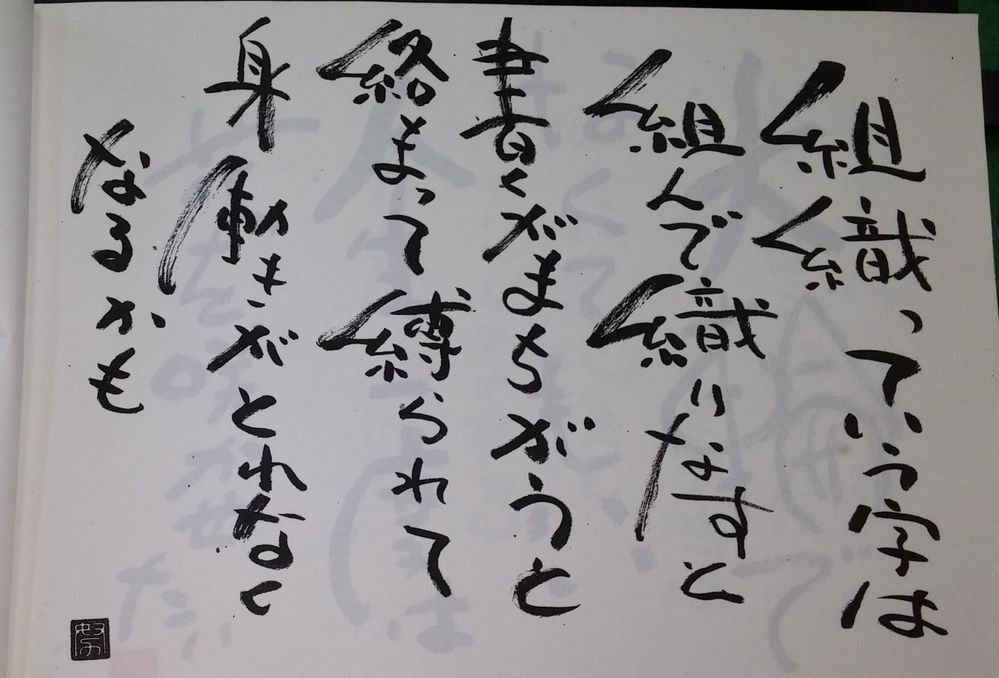 組織っていう字は
組んで織りなすと
書くがまちがうと
絡まって縛られて
身動きがとれなく
なるかも